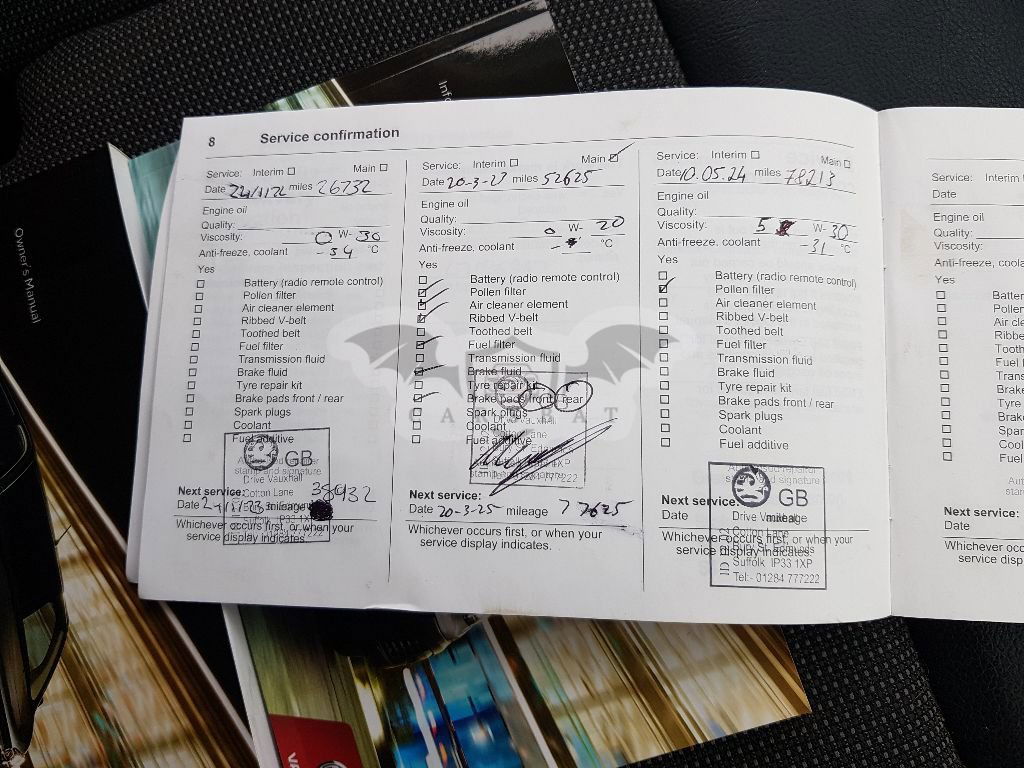 Info
Owner's Manual
8 Service confirmation
Service: Interim ☐ Main ☐
Date miles 26732
Engine oil
Quality:
Viscosity: 0 W- 30
Anti-freeze, coolant -34 °C
Yes
☐ Battery (radio remote control)
☐ Pollen filter
☐ Air cleaner element
☐ Ribbed V-belt
☐ Toothed belt
☐ Fuel filter
☐ Transmission fluid
☐ Brake fluid
☐ Tyre repair kit
☐ Brake pads front / rear
☐ Spark plugs
☐ Coolant
☐ Fuel additive
GB
stamp and signature
Drive Vauxhall
Cotton Lane
Suffolk IP33 1XP
777222
Next service:
Date mileage 38932
Whichever occurs first, or when your
service display indicates.
Service: Interim ☐ Main ☑
Date 20-3-23 miles 52625
Engine oil
Quality:
Viscosity: 0 W- 20
Anti-freeze, coolant °C
Yes
☐ Battery (radio remote control)
☑ Pollen filter
☑ Air cleaner element
☑ Ribbed V-belt
☐ Toothed belt
☑ Fuel filter
☐ Transmission fluid
☑ Brake fluid
☐ Tyre repair kit
☑ Brake pads front / rear
☐ Spark plugs
☐ Coolant
☐ Fuel additive
Next service:
Date 20-3-25 mileage 77625
Whichever occurs first, or when your
service display indicates.
Service: Interim ☐ Main ☐
Date 10.05.24 miles 78213
Engine oil
Quality:
Viscosity: 5 W- 30
Anti-freeze, coolant -31 °C
Yes
☐ Battery (radio remote control)
☑ Pollen filter
☐ Air cleaner element
☐ Ribbed V-belt
☐ Toothed belt
☐ Fuel filter
☐ Transmission fluid
☐ Brake fluid
☐ Tyre repair kit
☐ Brake pads front / rear
☐ Spark plugs
☐ Coolant
☐ Fuel additive
Authorised repairer
stamp and signature
GB
Drive Vauxhall
Cotton Lane
Bury St. Edmunds
Suffolk IP33 1XP
Tel:- 01284 777222
Next service:
Date mileage
Whichever occurs first, or when your
service display indicates.
Service: Interim
Date
Engine oil
Quality:
Viscosity:
Anti-freeze, coola
Yes
☐ Batter
☐ Pollen
☐ Air cle
☐ Ribbe
☐ Tooth
☐ Fuel
☐ Trans
☐ Brake
☐ Tyre
☐ Brake
☐ Spar
☐ Cool
☐ Fuel
Next service:
Date
Whichever occurs
service disp